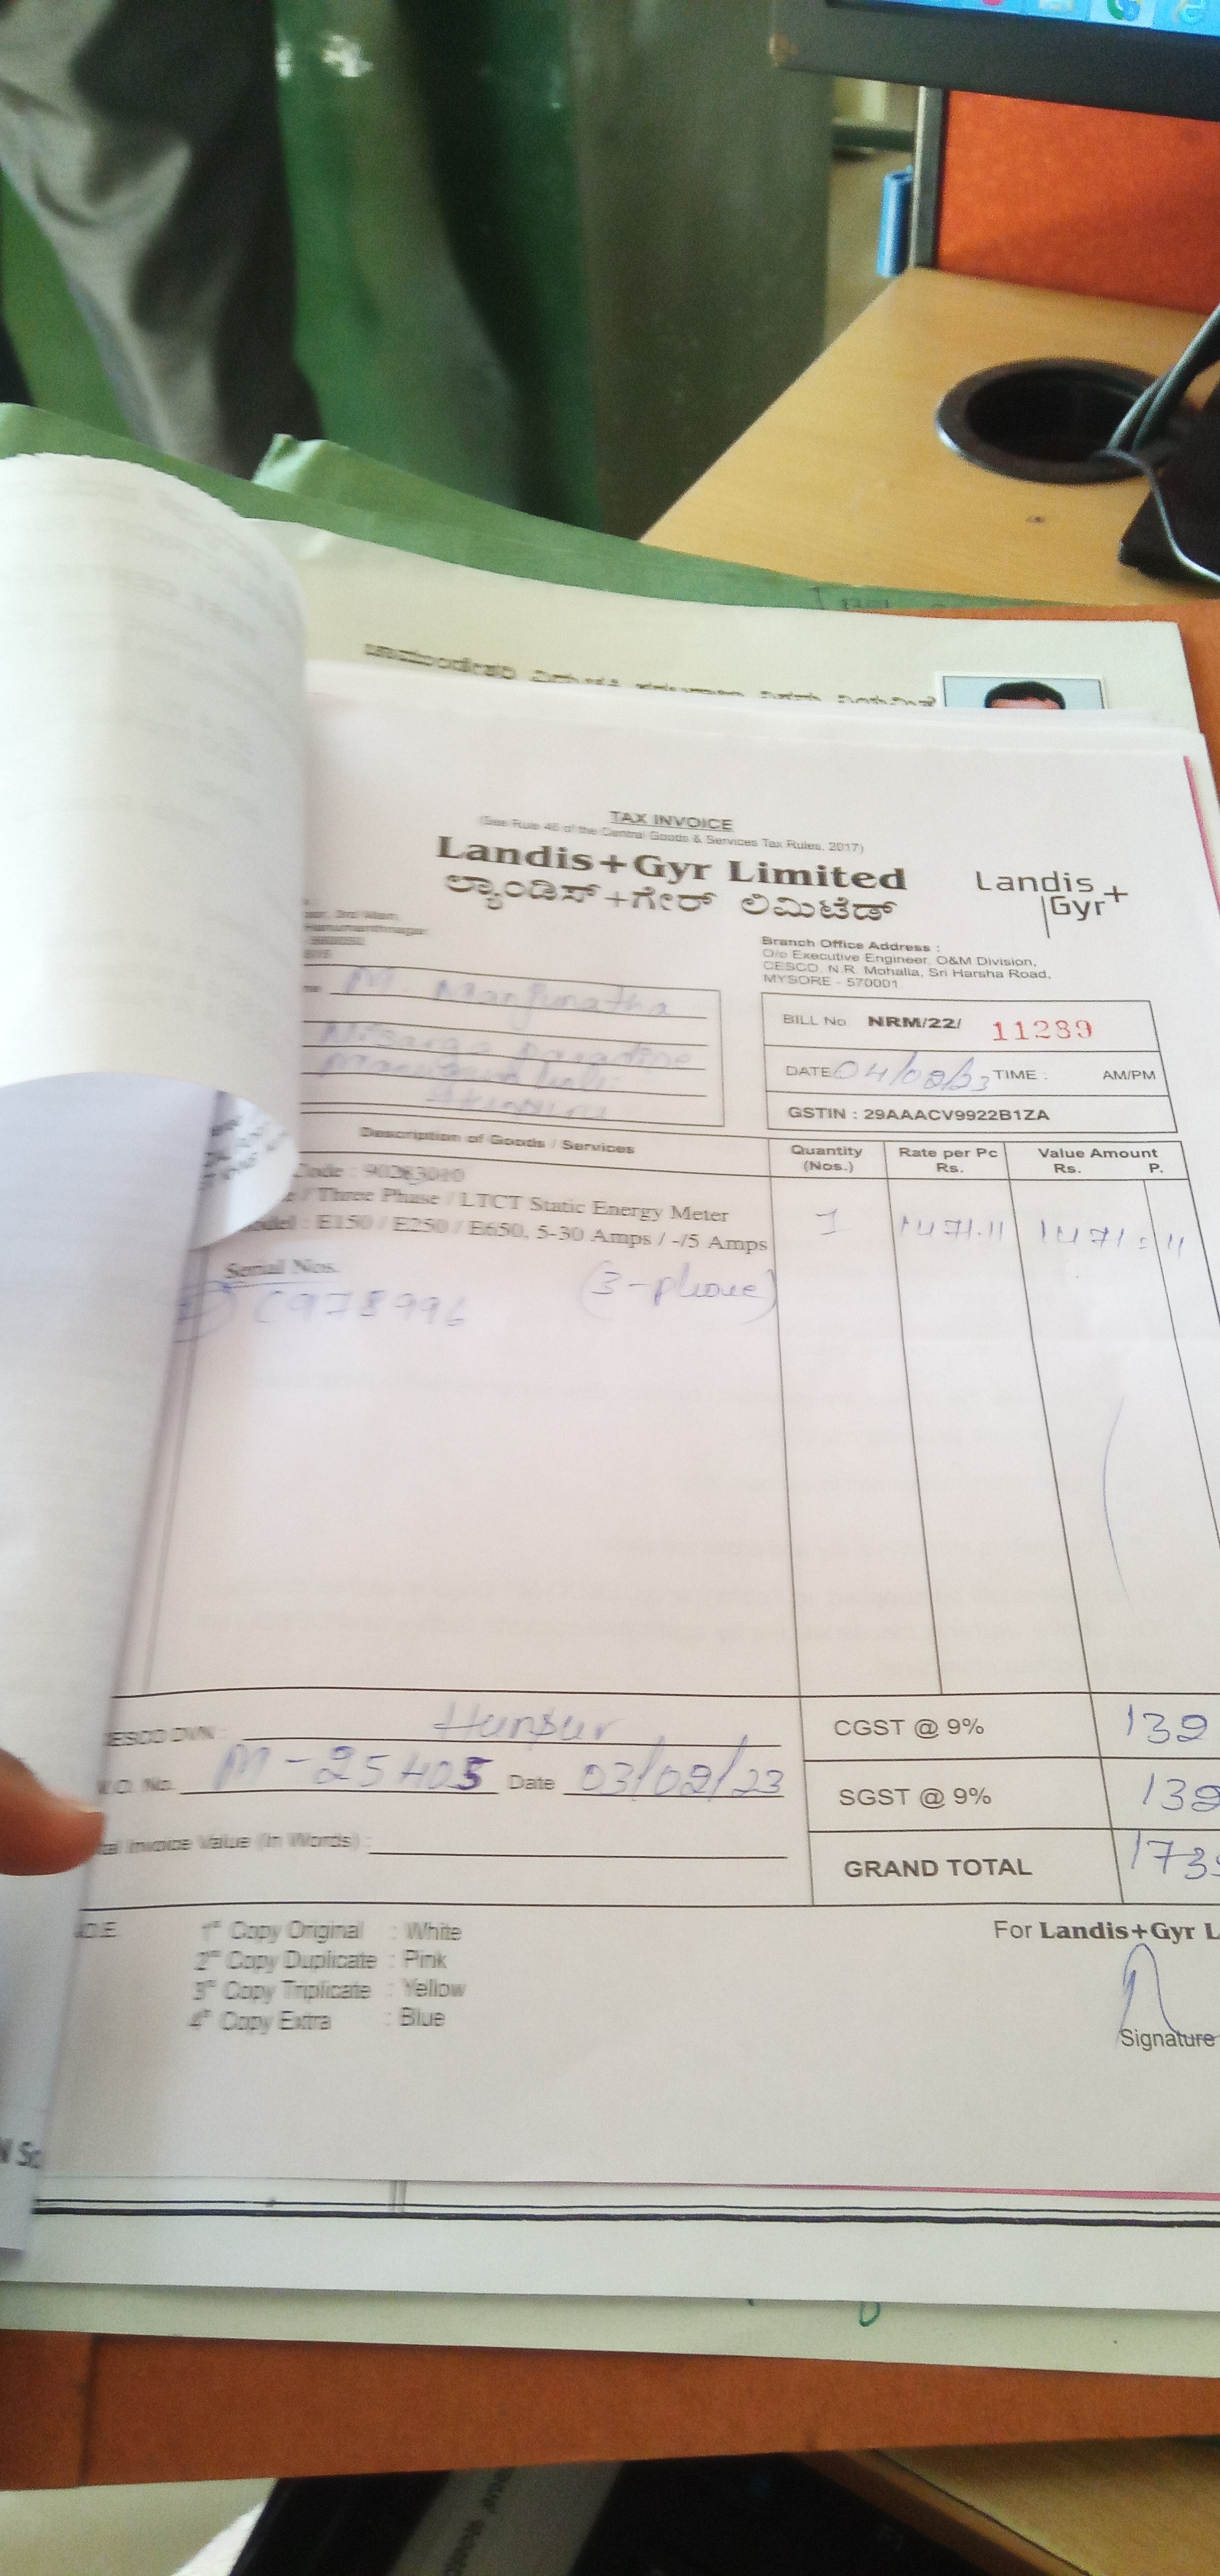 TAX INVOICE
(See Rule 46 of the Central Goods & Services Tax Rules, 2017)
Landis+Gyr Limited
ಲ್ಯಾಂಡಿಸ್+ಗೇರ್ ಲಿಮಿಟೆಡ್
Landis+
Gyr
3rd Main,
Hanumanthnagar
Branch Office Address :
O/o Executive Engineer, O&M Division,
CESCO, N.R. Mohalla, Sri Harsha Road,
MYSORE - 570001
M Manjunatha
BILL No. NRM/22/ 11289
DATE 04/02/23 TIME : AM/PM
GSTIN : 29AAACV9922B1ZA
Description of Goods / Services Quantity (Nos.) Rate per Pc Rs. Value Amount Rs. P.
Code : 90283010
/ Three Phase / LTCT Static Energy Meter
E150 / E250 / E650, 5-30 Amps / -/5 Amps 1 1471.11 1471 : 11
Serial Nos. (3-phase)
C978996
CESCO DVN : Hunsur
CGST @ 9% 132
No. M-25405 Date 03/02/23
SGST @ 9% 132
Invoice Value (In Words) :
GRAND TOTAL 173
1st Copy Original : White
2nd Copy Duplicate : Pink
3rd Copy Triplicate : Yellow
4th Copy Extra : Blue
For Landis+Gyr L
Signature